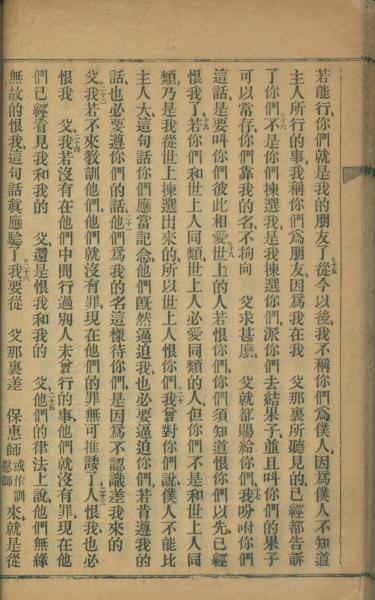 若能行、你們就是我的朋友了、十五從今以後、我不稱你們爲僕人、因爲僕人不知道
主人所行的事、我稱你們爲朋友、因爲我在我　父那裏所聽見的、已經都告訴
了你們、十六不是你們揀選我、是我揀選你們、派你們去結果子、並且叫你們的果子
可以常存、你們靠我的名、不拘向　父求甚麽、　父就都賜給你們、十七我吩咐你們
這話、是要叫你們彼此相愛、十八世上的人若恨你們、你們須知道恨你們以先、已經
恨我了、十九若你們和世上人同類、世上人必愛同類的人、但你們不是和世上人同
類、乃是我從世上揀選出來的、所以世上人恨你們、二十我曾對你們說、僕人不能比
主人大、這句話你們應當記念、他們旣然逼迫我、也必要逼迫你們、若肯遵我的
話、也必要遵你們的話、二十一他們爲我的名這樣待你們、是因爲不認識差我來的
父、二十二我若不來敎訓他們、他們就沒有罪、現在他們的罪無可推諉了、二十三人恨我、也必
恨我　父、二十四我若沒有在他們中間行過別人未曾行的事、他們就沒有罪、現在他
們已經看見我和我的　父、還是恨我和我的　父、二十五他們的律法上說、他們無緣
無故的恨我、這句話眞應驗了、二十六我要從　父那裏差　保惠師或作訓慰師來、就是從